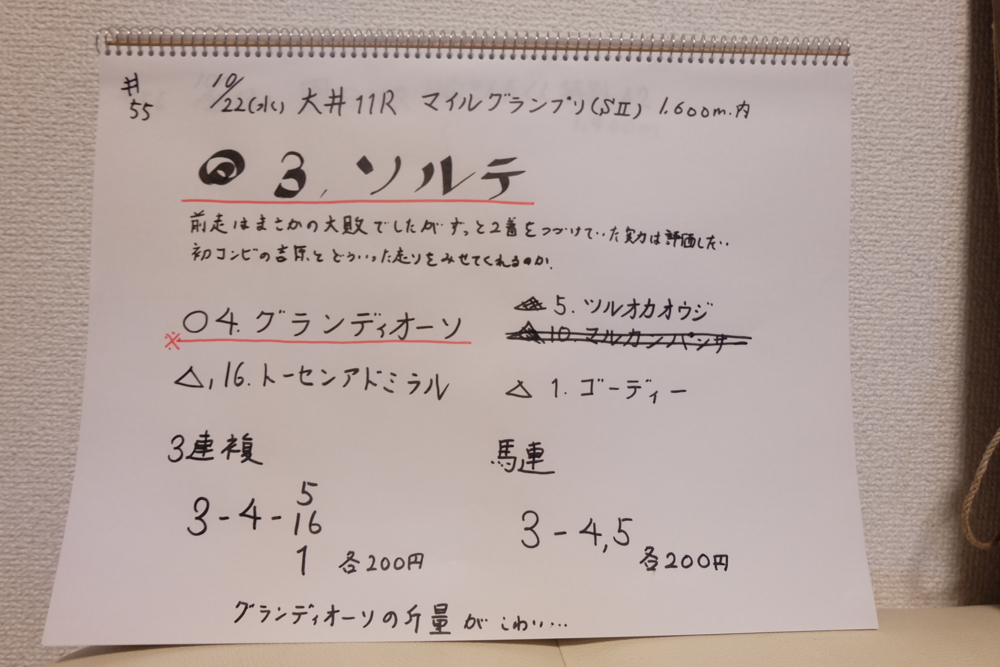 #55
10/22(水) 大井11R マイルグランプリ(SⅡ) 1,600m.内
◎ 3, ソルテ
前走はまさかの大敗でしたがずっと2着をつづけていた実力は評価したい
初コンビの吉原とどういった走りをみせてくれるのか.
※○4.グランディオーソ
△,16.トーセンアドミラル
▲5.ツルオカオウジ
▲10.マルカンパンサー
△1.ゴーディー
3連複
3-4-5
16
1 各200円
馬連
3-4,5
各200円
グランディオーソの斤量がこわい…